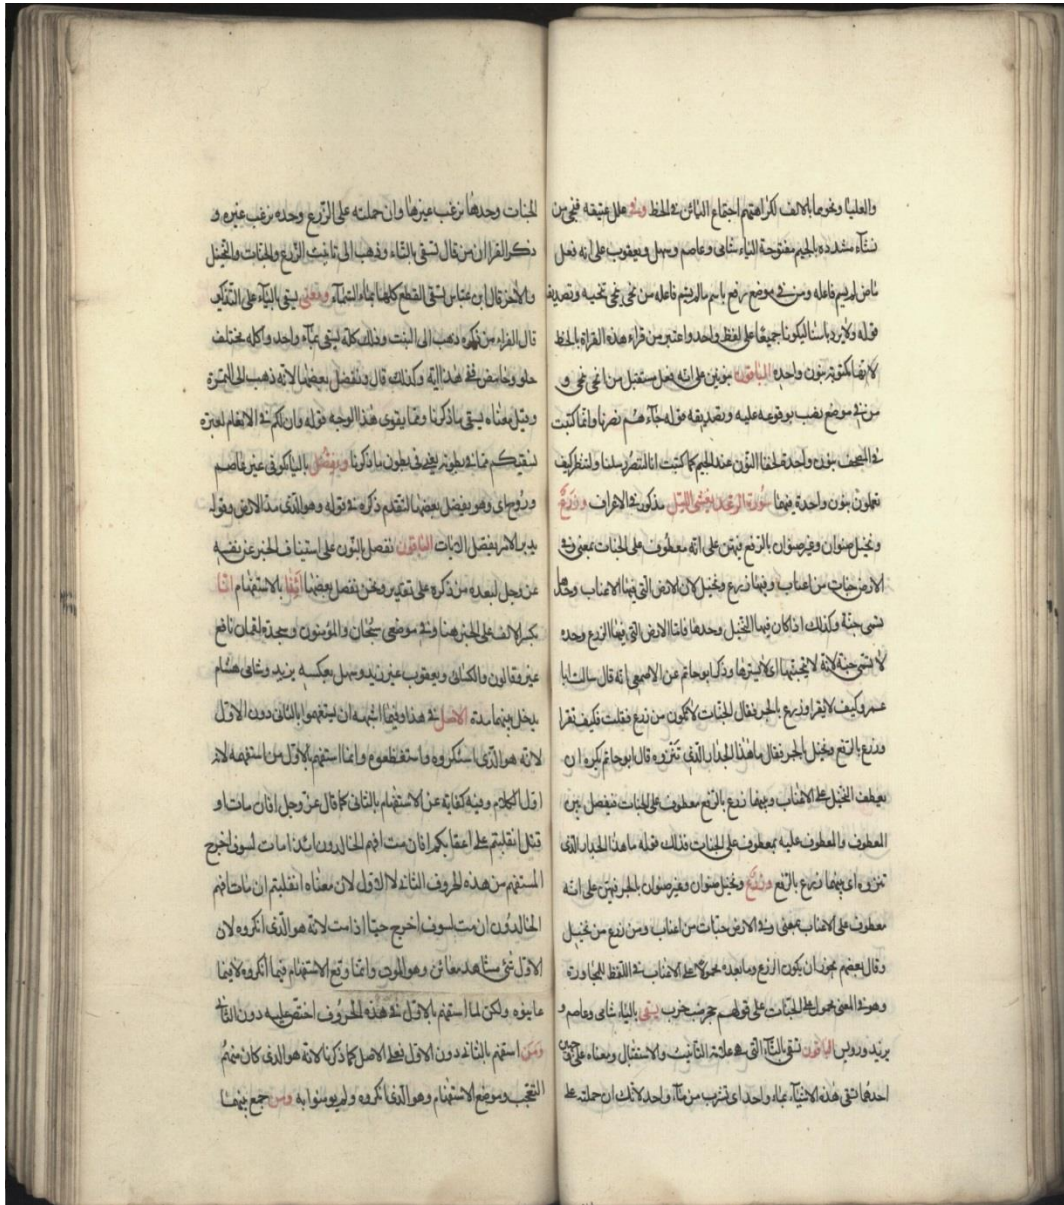 والعليا ونحوها بالالف لكراهتهم اجتماع اليائين في الخط وفي علل عتيقه فنجي من
نشآء مشدده بالجيم مفتوحة الياء شامى وعاصم وسهل ويعقوب على انه فعل
ماض لم يسم فاعله ومن في موضع رفع باسم مالم يسم فاعله من نجى ينجى تنجيه وتصديق
قوله ولا يرد باسنا ليكونا جميعا على لفظ واحد واعتبر من قراء هذه القراة بالخط
لانها مكتوبة بنون واحده الباقون بنونين على انه فعل مستقبل من انجى ينجى و
من في موضع نصب بوقوعه عليه وتصديقه قوله جآءهم نصرنا وانما كتبت
في المصحف بنون واحدة لخفآ النون عند الجيم كما كتبت انا لننصر رسلنا ولننظر كيف
تعملون بنون واحدة فيهما سورة الرعد يغشى الليل مذكور في الاعراف وزرع
ونخيل صنوان وغير صنوان بالرفع فيهن على انه معطوف على الجنات بمعنى وفي
الارض جنات من اعناب وفيها زرع ونخيل لان الارض التى فيها الاعناب وحدها
تسمى جنة وكذلك اذا كان فيها النخيل وحدها فاما الارض التى فيها الزرع وحده
لا تسمى جنة لانه لا يجنها اى لا يسترها وذكر ابو حاتم عن الاصمعى انه قال سالت ابا
عمرو كيف لا يقرا وزرع بالجر فقال الجنات لا تكون من زرع فقلت فكيف تقرا
وزرع بالرفع ونخيل بالجر فقال ما هذا الجدار الذى تنزوه قال ابو حاتم يكره ان
يعطف النخيل على الاعناب وبينهما زرع بالرفع معطوف على الجنات فيفصل بين
المعطوف والمعطوف عليه بمعطوف على الجنات فذلك قوله ما هذا الجدار الذى
تنزوه اى بينهما وزرع بالرفع وزرع ونخيل صنوان وغير صنوان بالجر فيهن على انه
معطوف على الاعناب بمعنى وفي الارض جنات من اعناب ومن زرع من نخيل
وقال بعضهم يجوز ان يكون الزرع وما بعده محمولا على الاعناب في اللفظ للمجاورة
وهو في المعنى محمول على الجنات على قولهم جحر ضب خرب يسقى بالياء شامى وعاصم و
يزيد ورويس الباقون تسقى بالتآء التى هي علامة التانيث والاستقبال ومعناه على
احدهما تسقى هذه الاشيآء بمآء واحد اى تشرب من مآء واحد لانك ان حملته على
الجنات وحدها ترغب عن غيرها وان حملته على الزرع وحده ترغب غيره و
ذكر الفرا ان من قال تسقى بالتاء وذهب الى تانيث الزرع والجنات والنخيل
قال ابن عباس تسقى القطع كلها بماء السمآء ومعنى يسقى باليآء على التذكير
قال الفراء من ذكره ذهب الى النبت وذلك كله يسقى بمآء واحد واكله مختلف
حلو وحامض ففي هذا اية وكذلك قال ونفضل بعضها لانه ذهب الى الثمرة
وقيل معناه يسقى ما ذكرنا ومما يقوى هذا الوجه قوله وان لكم في الانعام لعبرة
نسقيكم مما في بطونه يعنى في بطون ما ذكرنا ويفضل باليا كوفى غير عاصم
وروح اى وهو يفضل بعضها لتقدم ذكره في قوله وهو الذى مد الارض وقوله
يدبر الامر يفصل الايات الباقون نفضل بالنون على استيناف الخبر عن نفسه
عز وجل لبعده من ذكره على تقدير ونحن نفضل بعضها ائنا بالاستفهام انا
بكسر الالف على الخبر هنا وفي موضعى سبحان والمؤمنون وسجدة لقمان نافع
غير قالون والكسائى ويعقوب غير زيد وسهل بعكسه يزيد وشامى هشام
يدخل بينهما مدة الاصل في هذا وفيما اشبهه ان يستفهموا بالثانى دون الاول
لانه هو الذى استنكروه واستفظعوه وانما استفهم بالاول من استفهمه لانه
اول الكلام وفيه كفاية عن الاستفهام بالثانى كما قال عز وجل افان مات او
قتل انقلبتم على اعقابكم افان مت افهم الخالدون ائذا مات لسوف اخرج
المستفهم من هذه الحروف الثانى لا الاول لان معناه انقلبتم ان مات افهم
الخالدون ان مت لسوف اخرج حيا اذا مت لانه هو الذى انكروه لان
الاول شئ مشاهد معائن وهو الموت وانما وقع الاستفهام فيما انكروه لا فيما
عاينوه ولكن لما استفهم بالاول في هذه الحروف اختص عليه دون الثانى
ومن استفهم بالثانى دون الاول فعلى الاصل كما ذكرنا لانه هو الذى كان منهم
التعجب وموضع الاستفهام وهو الذى انكروه ولم يومنوا به ومن جمع بينهما